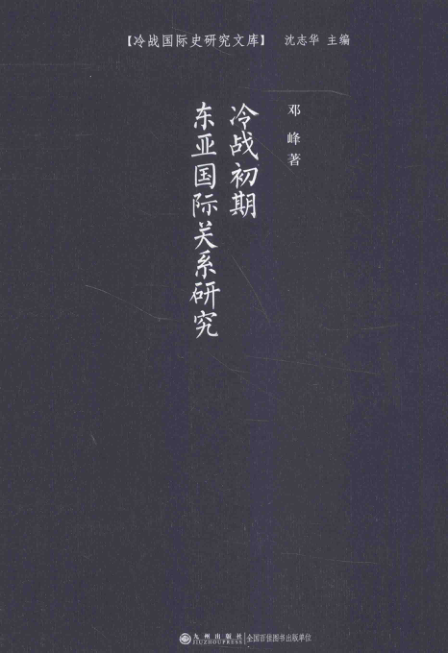 【冷战国际史研究文库】 沈志华 主编
邓峰著
冷战初期
东亚国际关系研究
九州出版社 全国百佳图书出版单位
JIUZHOUPRESS